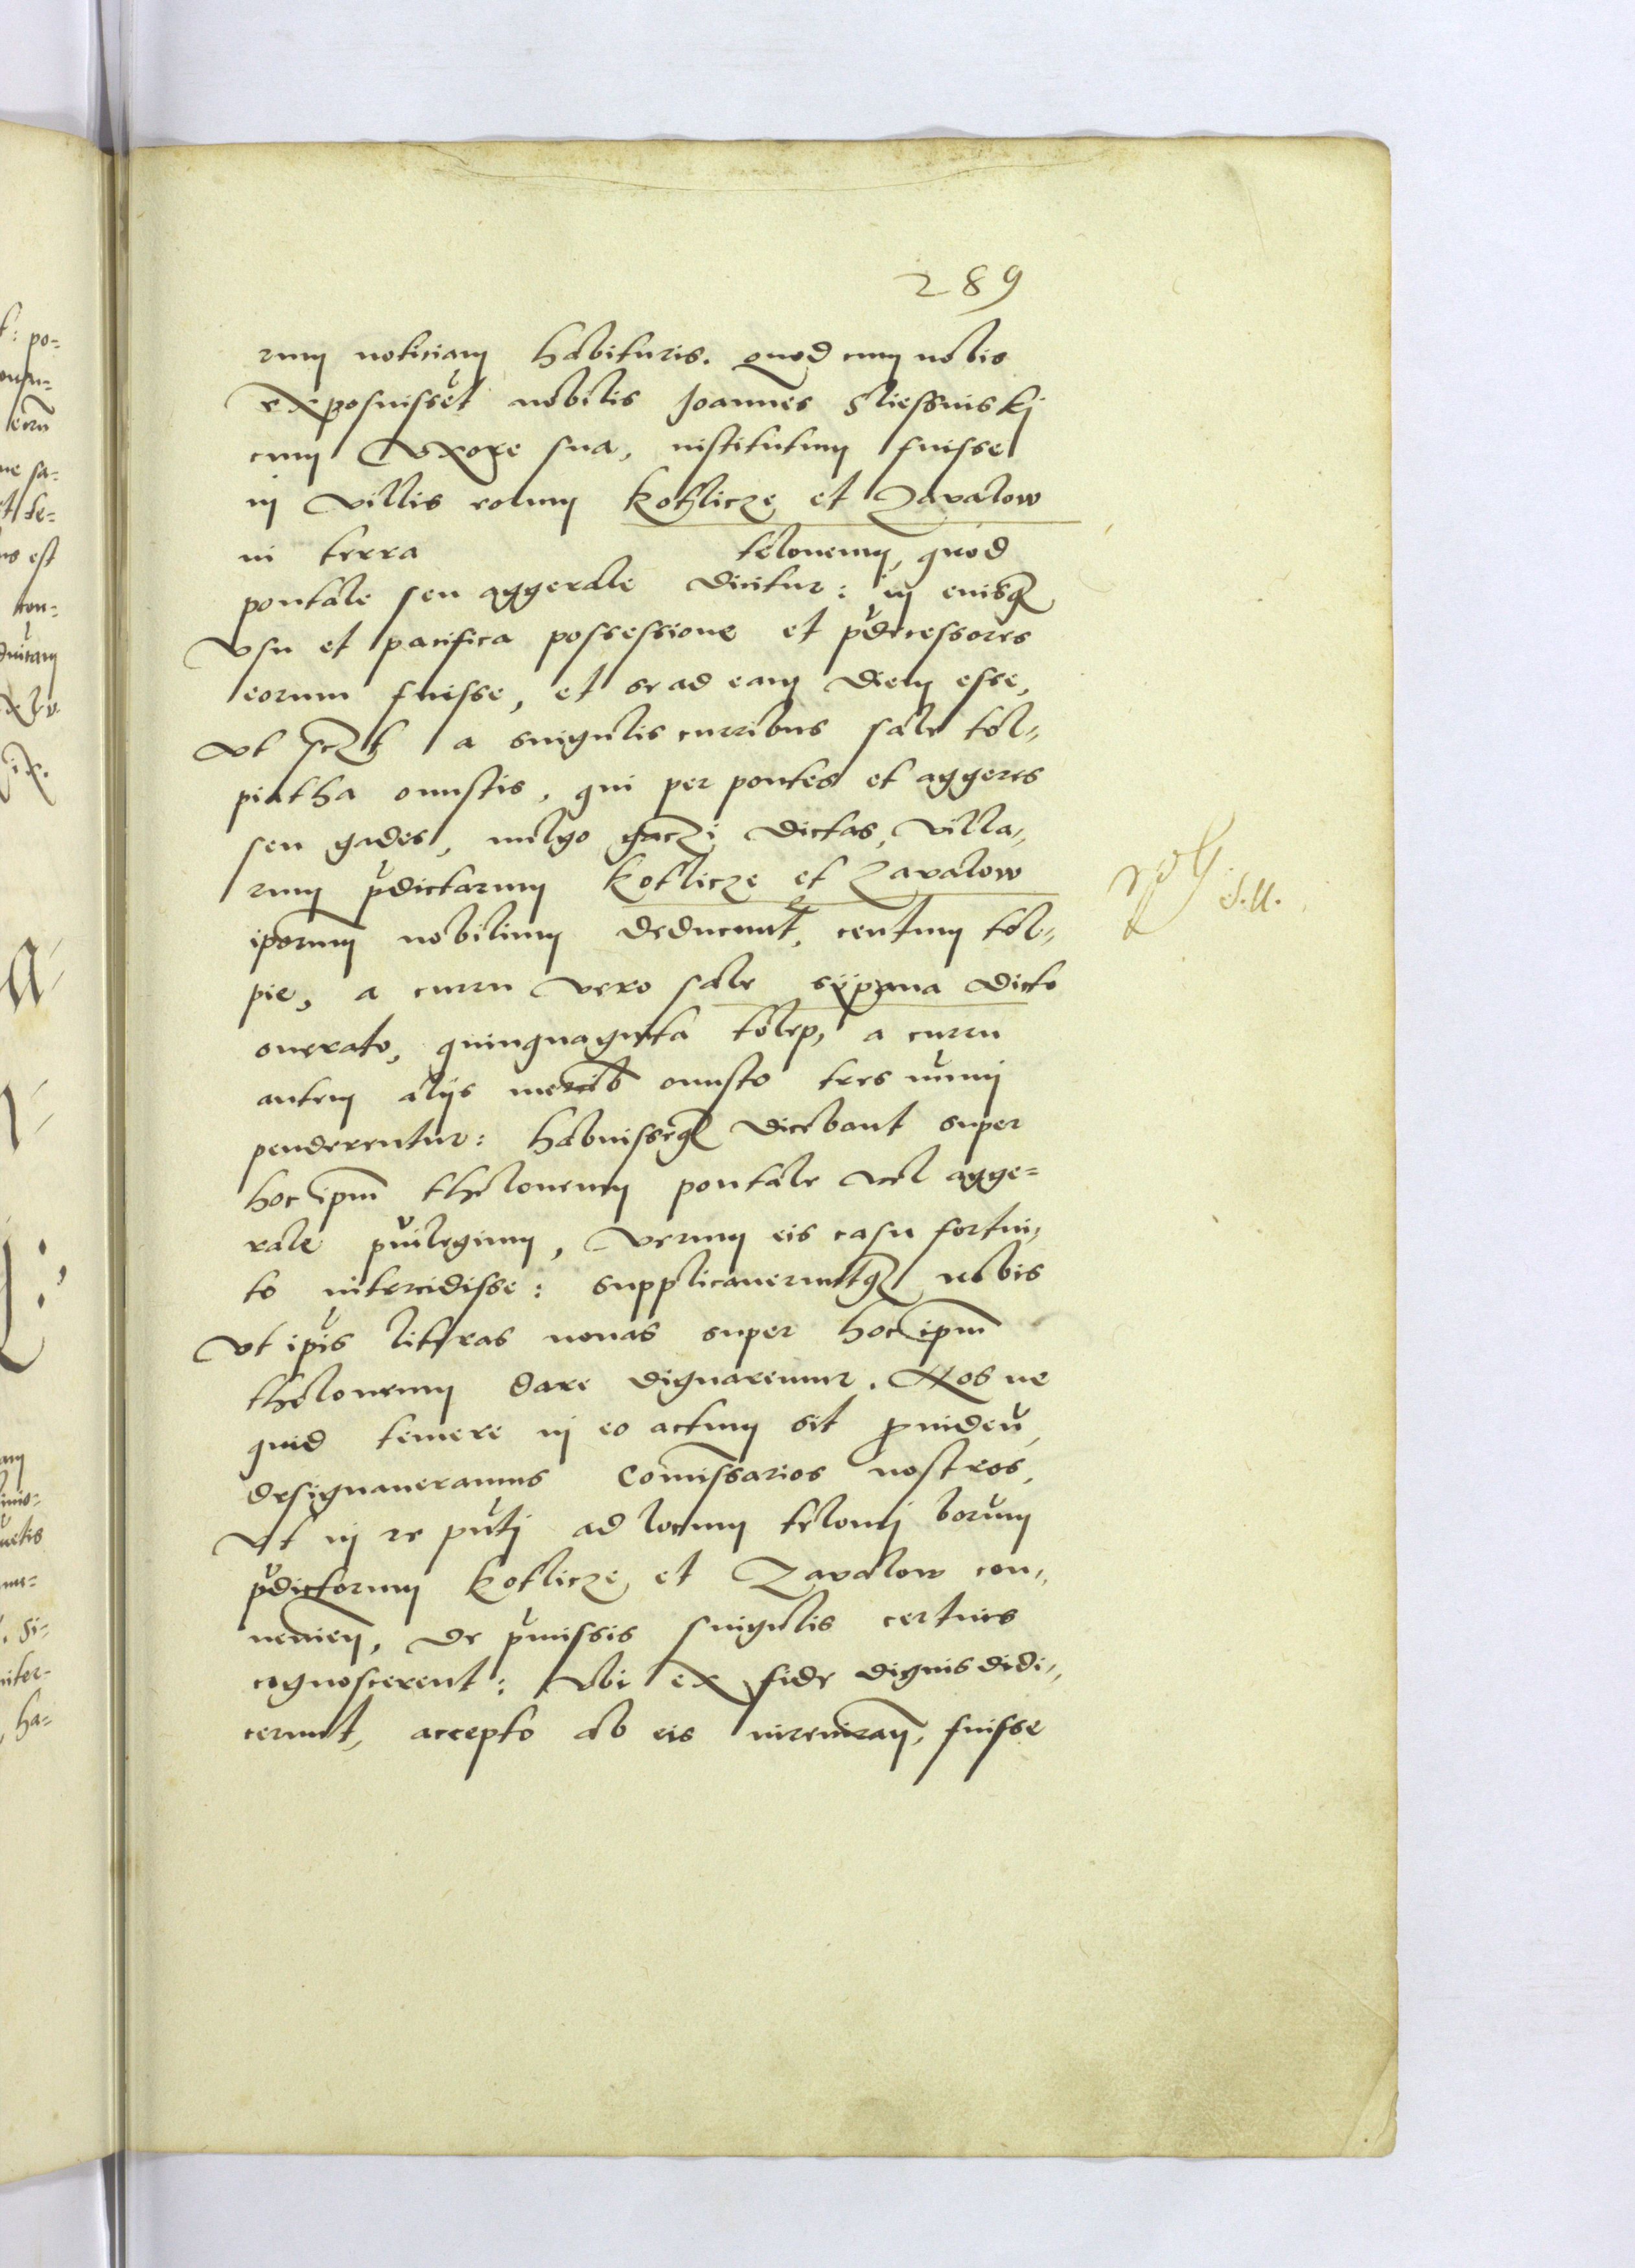 289
rum noticiam habituris. Quod cum nobis
exposuisset nobilis Joannes Sliessinskj
cum Uxore sua, institutum fuisse
in villis eorum Kotlicze et Zavalow
in terra teloneum, quod
pontale seu aggerale dicitur: in cuiusq
usu et pacifica possessione et pdecessores
eorum fuisse, et se ad eam diem esse,
Ut scZt a singulis curribus sale tol„
piatha onustis, qui per pontes et aggeres
seu gades, vulgo gaczi dictas, villa„
rum pdictarum Kotlicze et Zavalow
iporum nobilium deducunt, centum tol„
pie, a curru vero sale sÿpana dicto
onerato, quinquaginta tolep, a curru
autem alijs mercib onusto tres numi
penderentur: habuisseq dicebant super
hoc ipm theloneum pontale vel agge=
rale puilegium, verum eis casu fortui„
to intercidisse: supplicaveruntq nobis
Ut ipis litteras novas super hoc ipm
theloneum dare dignaremur. Nos ne
quid temere in eo actum sit providen,
designaveramus Comissarios nostros,
Ut in re pnti ad locum telonij bonorum
pdictorum Kotlicze et Zavalow con„
venien, de pmissis singulis certius
cognoscerent: Ubi ex fide dignis didi„
cerunt, accepto ab eis iureiuran, fuisse
S.U.